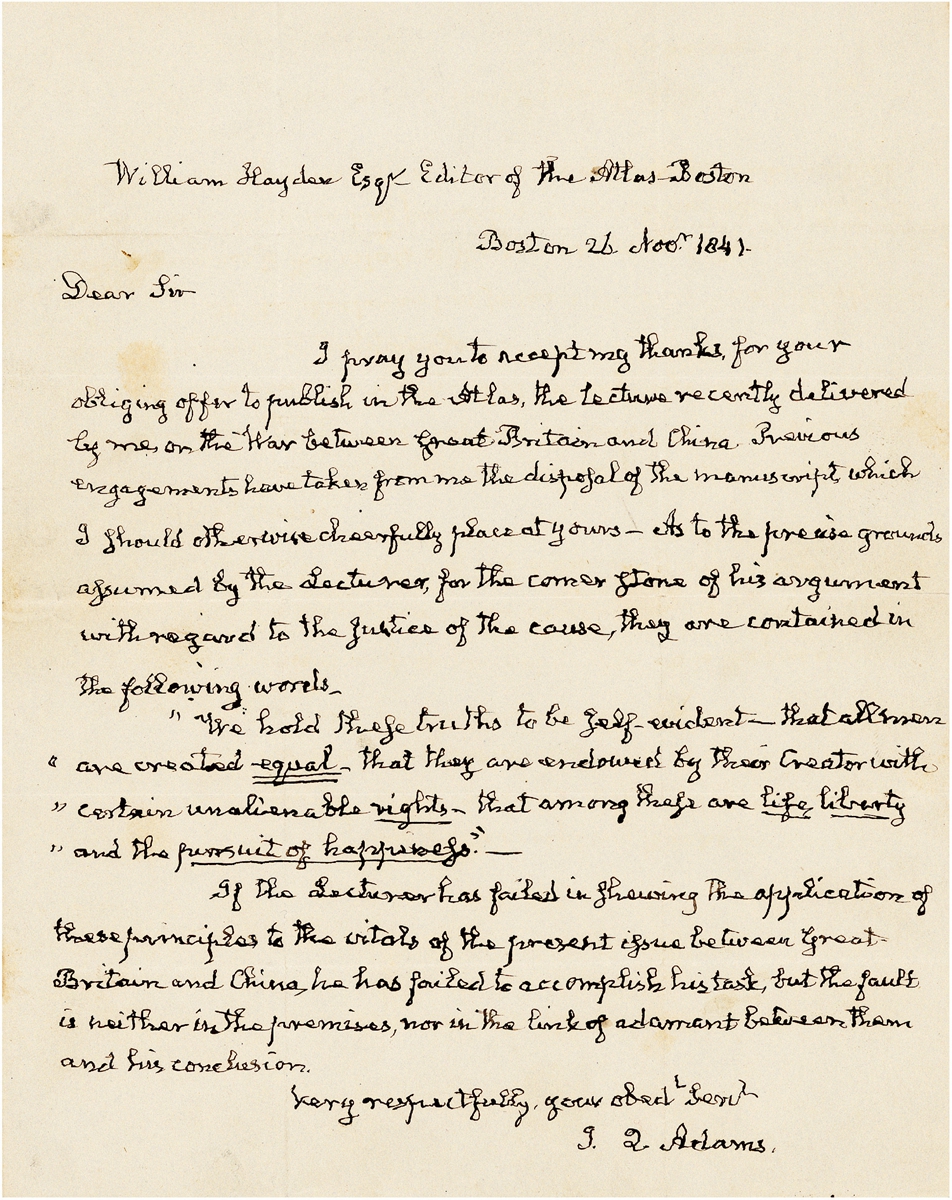 William Hayden Esqr Editor of the Atlas-Boston
Boston 26. Novr. 1841.
Dear Sir
I pray you to accept my thanks, for your
obliging offer to publish in the Atlas, the Lecture recently delivered
by me, on the War between Great Britain and China. Previous
engagements have taken from me the disposal of the manuscript, which
I should otherwise cheerfully place at yours — As to the precise grounds
assumed by the Lecturer, for the corner stone of his argument
with regard to the Justice of the cause, they are contained in
the following words—
" "We hold these truths to be self-evident — that all men
" are created equal — that they are endowed by their Creator with
" certain unalienable rights — that among these are life, liberty
" and the pursuit of happiness." —
If the Lecturer has failed in shewing the application of
these principles to the vitals of the present issue between Great-
Britain and China, he has failed to accomplish his task, but the fault
is neither in the premises, nor in the link of adamant between them
and his conclusion.
Very respectfully, your obedt Servt
J. Q. Adams.